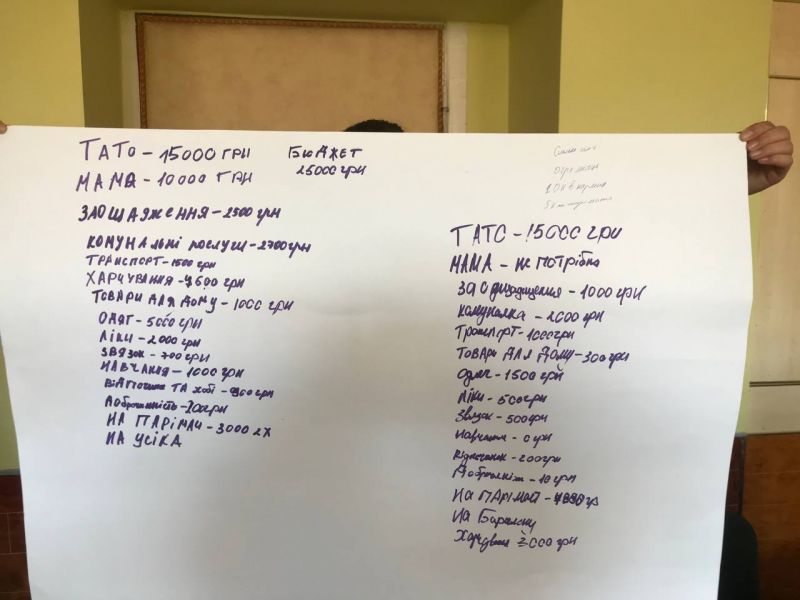 ТАТО - 15000 ГРИ
МАМА - 10000 ГРИ
БЮДЖЕТ
25000 грн
ЗАОЩАЯЖЕННЯ - 2500 грн
КОМУНАЛЬНІ ПОСЛУГИ - 2700 грн
ТРАНСПОРТ - 1500 грн
ХАРЧУВАННЯ - грн
ТОВАРИ ДЛЯ ДОМУ - 1000 грн
ОДЯГ - 5000 грн
ЛІКИ - 2000 грн
ЗВЯЗОК - 700 грн
НАВЧАННЯ - 1000 грн
ВІДПОЧИНОК ТА ХОБІ - грн
Доброчинність - грн
НА ПАРІМАЧ - 3000 2Х
НА УСІКА
ТАТО - 15000 грн
МАМА - не потрібна
- 1000 грн
Комуналка - 2000 грн
Транспорт - 1000 грн
Товари для дому - 300 грн
Одяг - 1500 грн
Ліки - 500 грн
Звязок - 500 грн
Навчання - 0 грн
Відпочинок - 200 грн
- 10 грн
На ПАРІМАТЧ -
На Барселону
Харчування 2000 грн